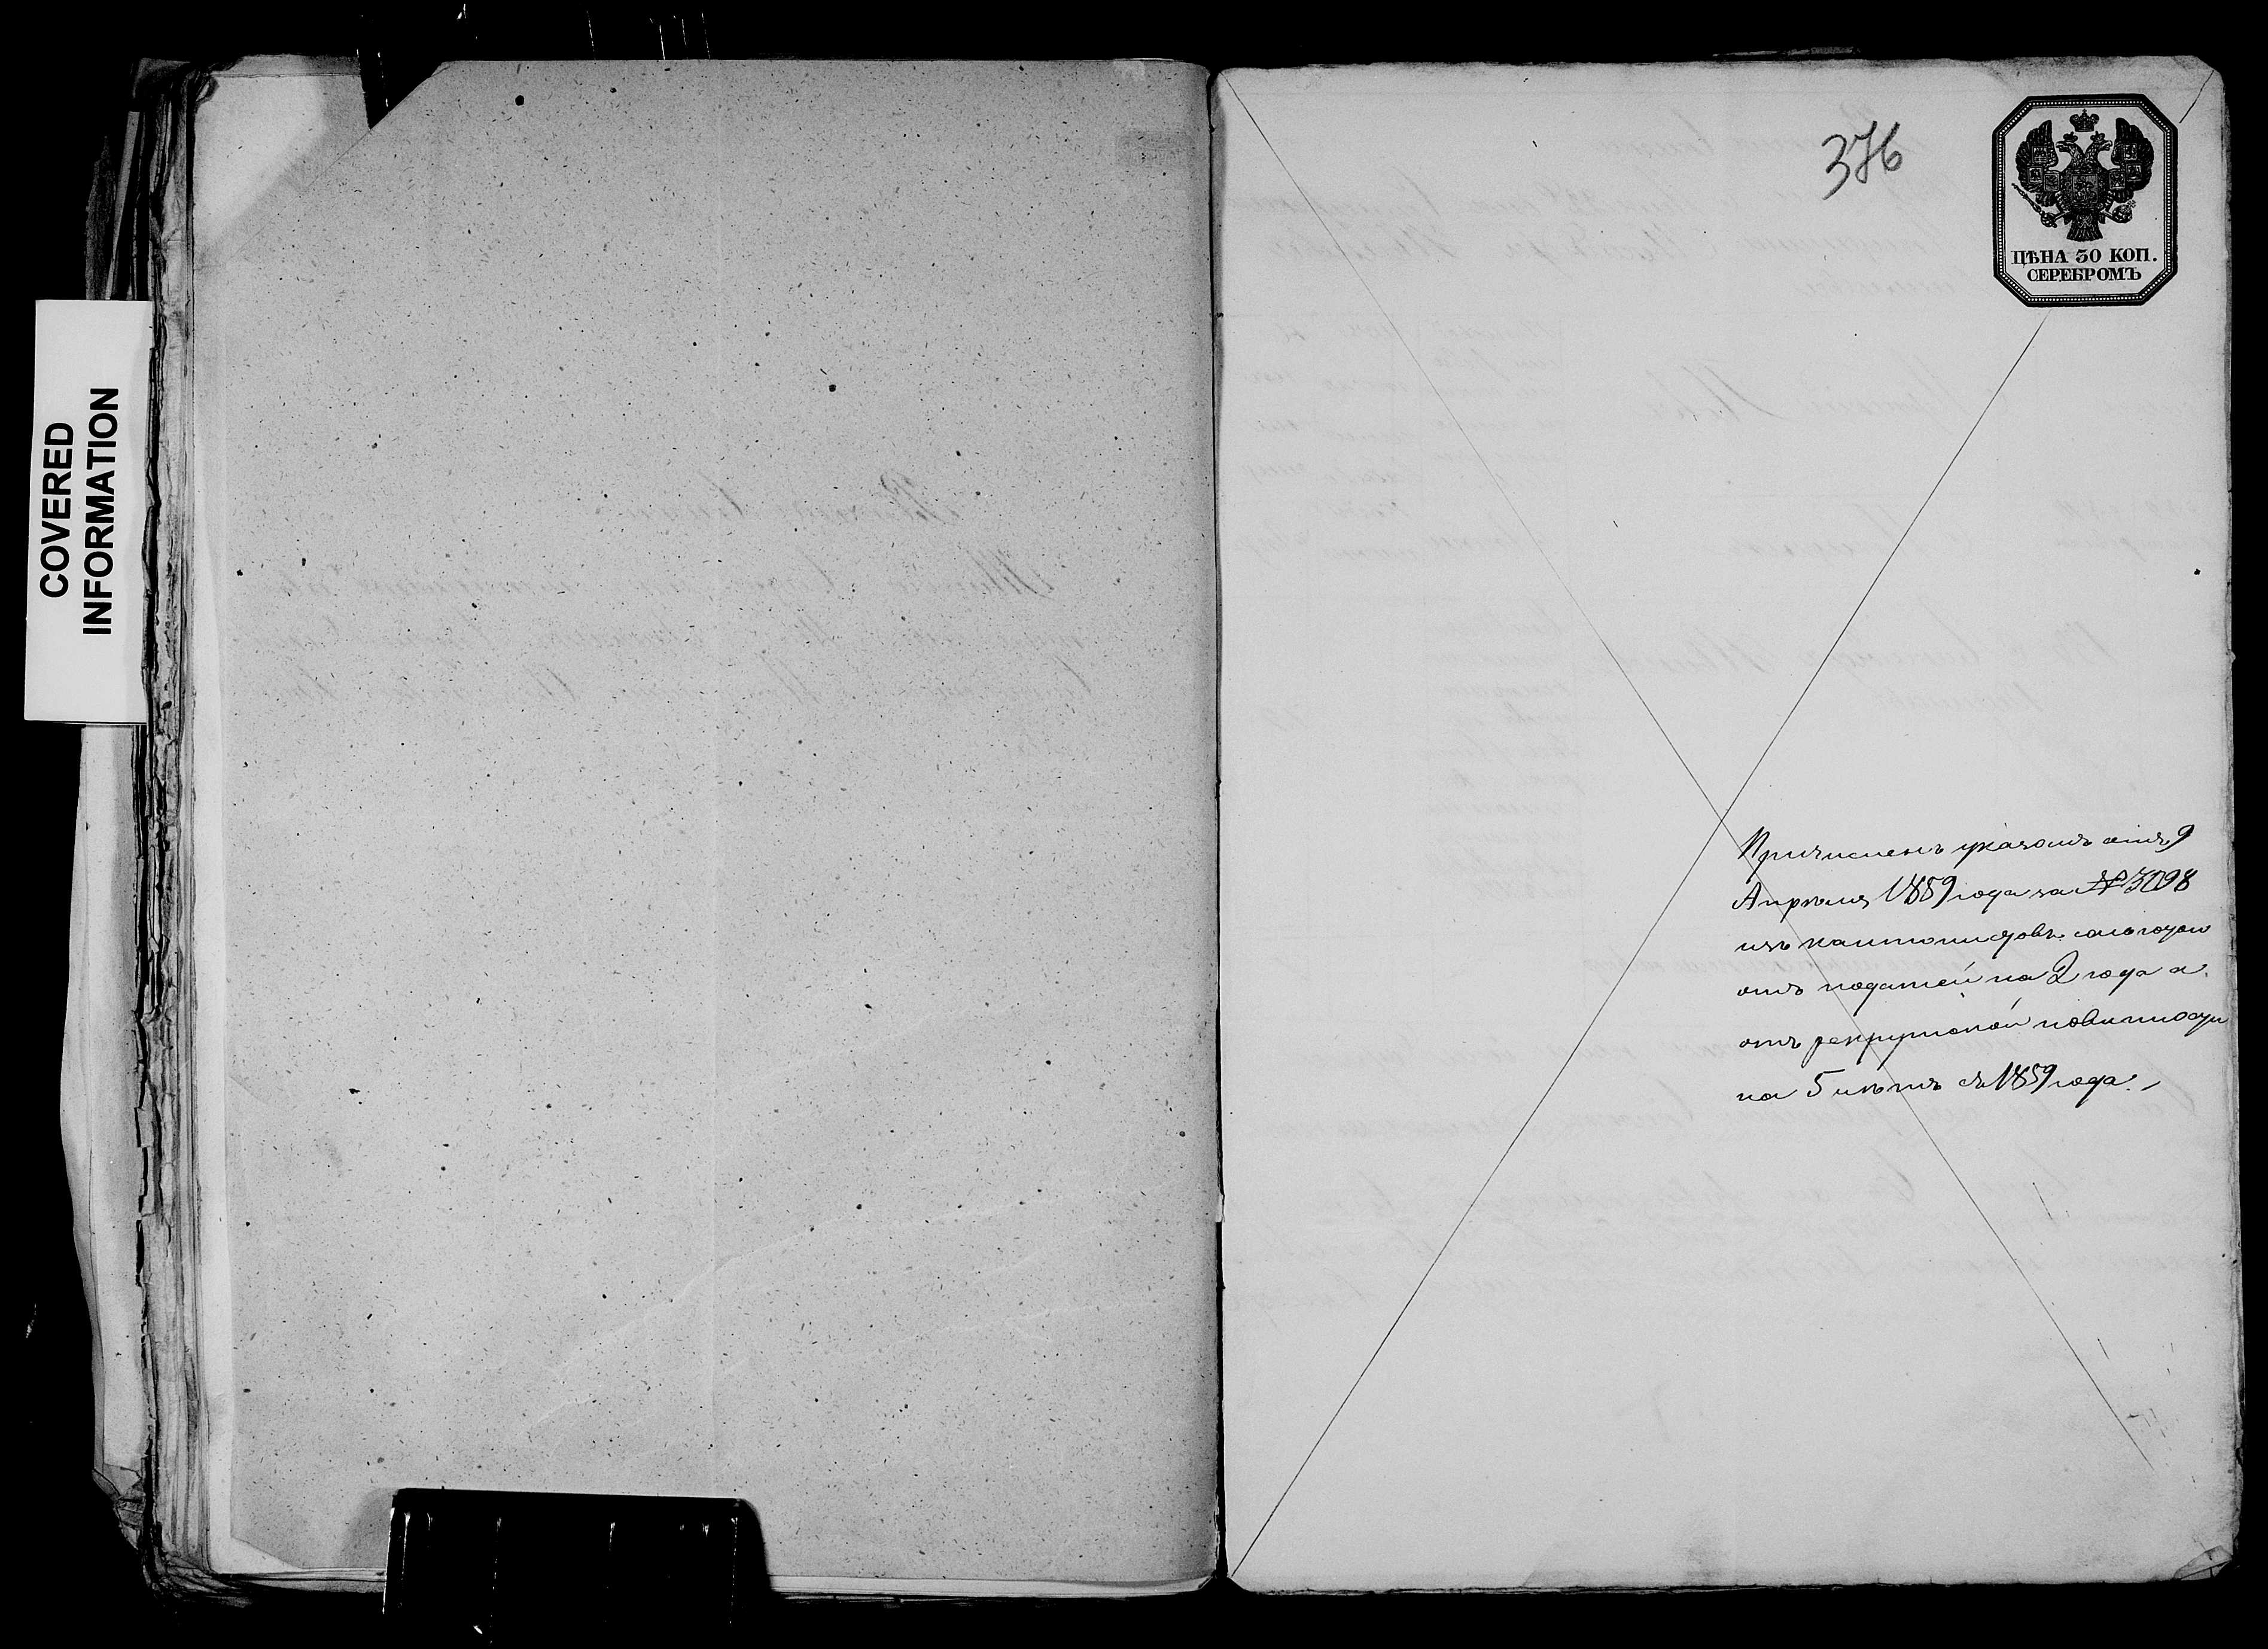 COVERED
INFORMATION
376
ЦѢНА 30 КОП.
СЕРЕБРОМЪ
Причисленъ указомъ отъ 9
Апрѣля 1859 года за № 3098
изъ кантонистовъ сольготою
отъ податей на 2 года а
отъ рекрутской повинности
на 5 лѣтъ съ 1859 года.